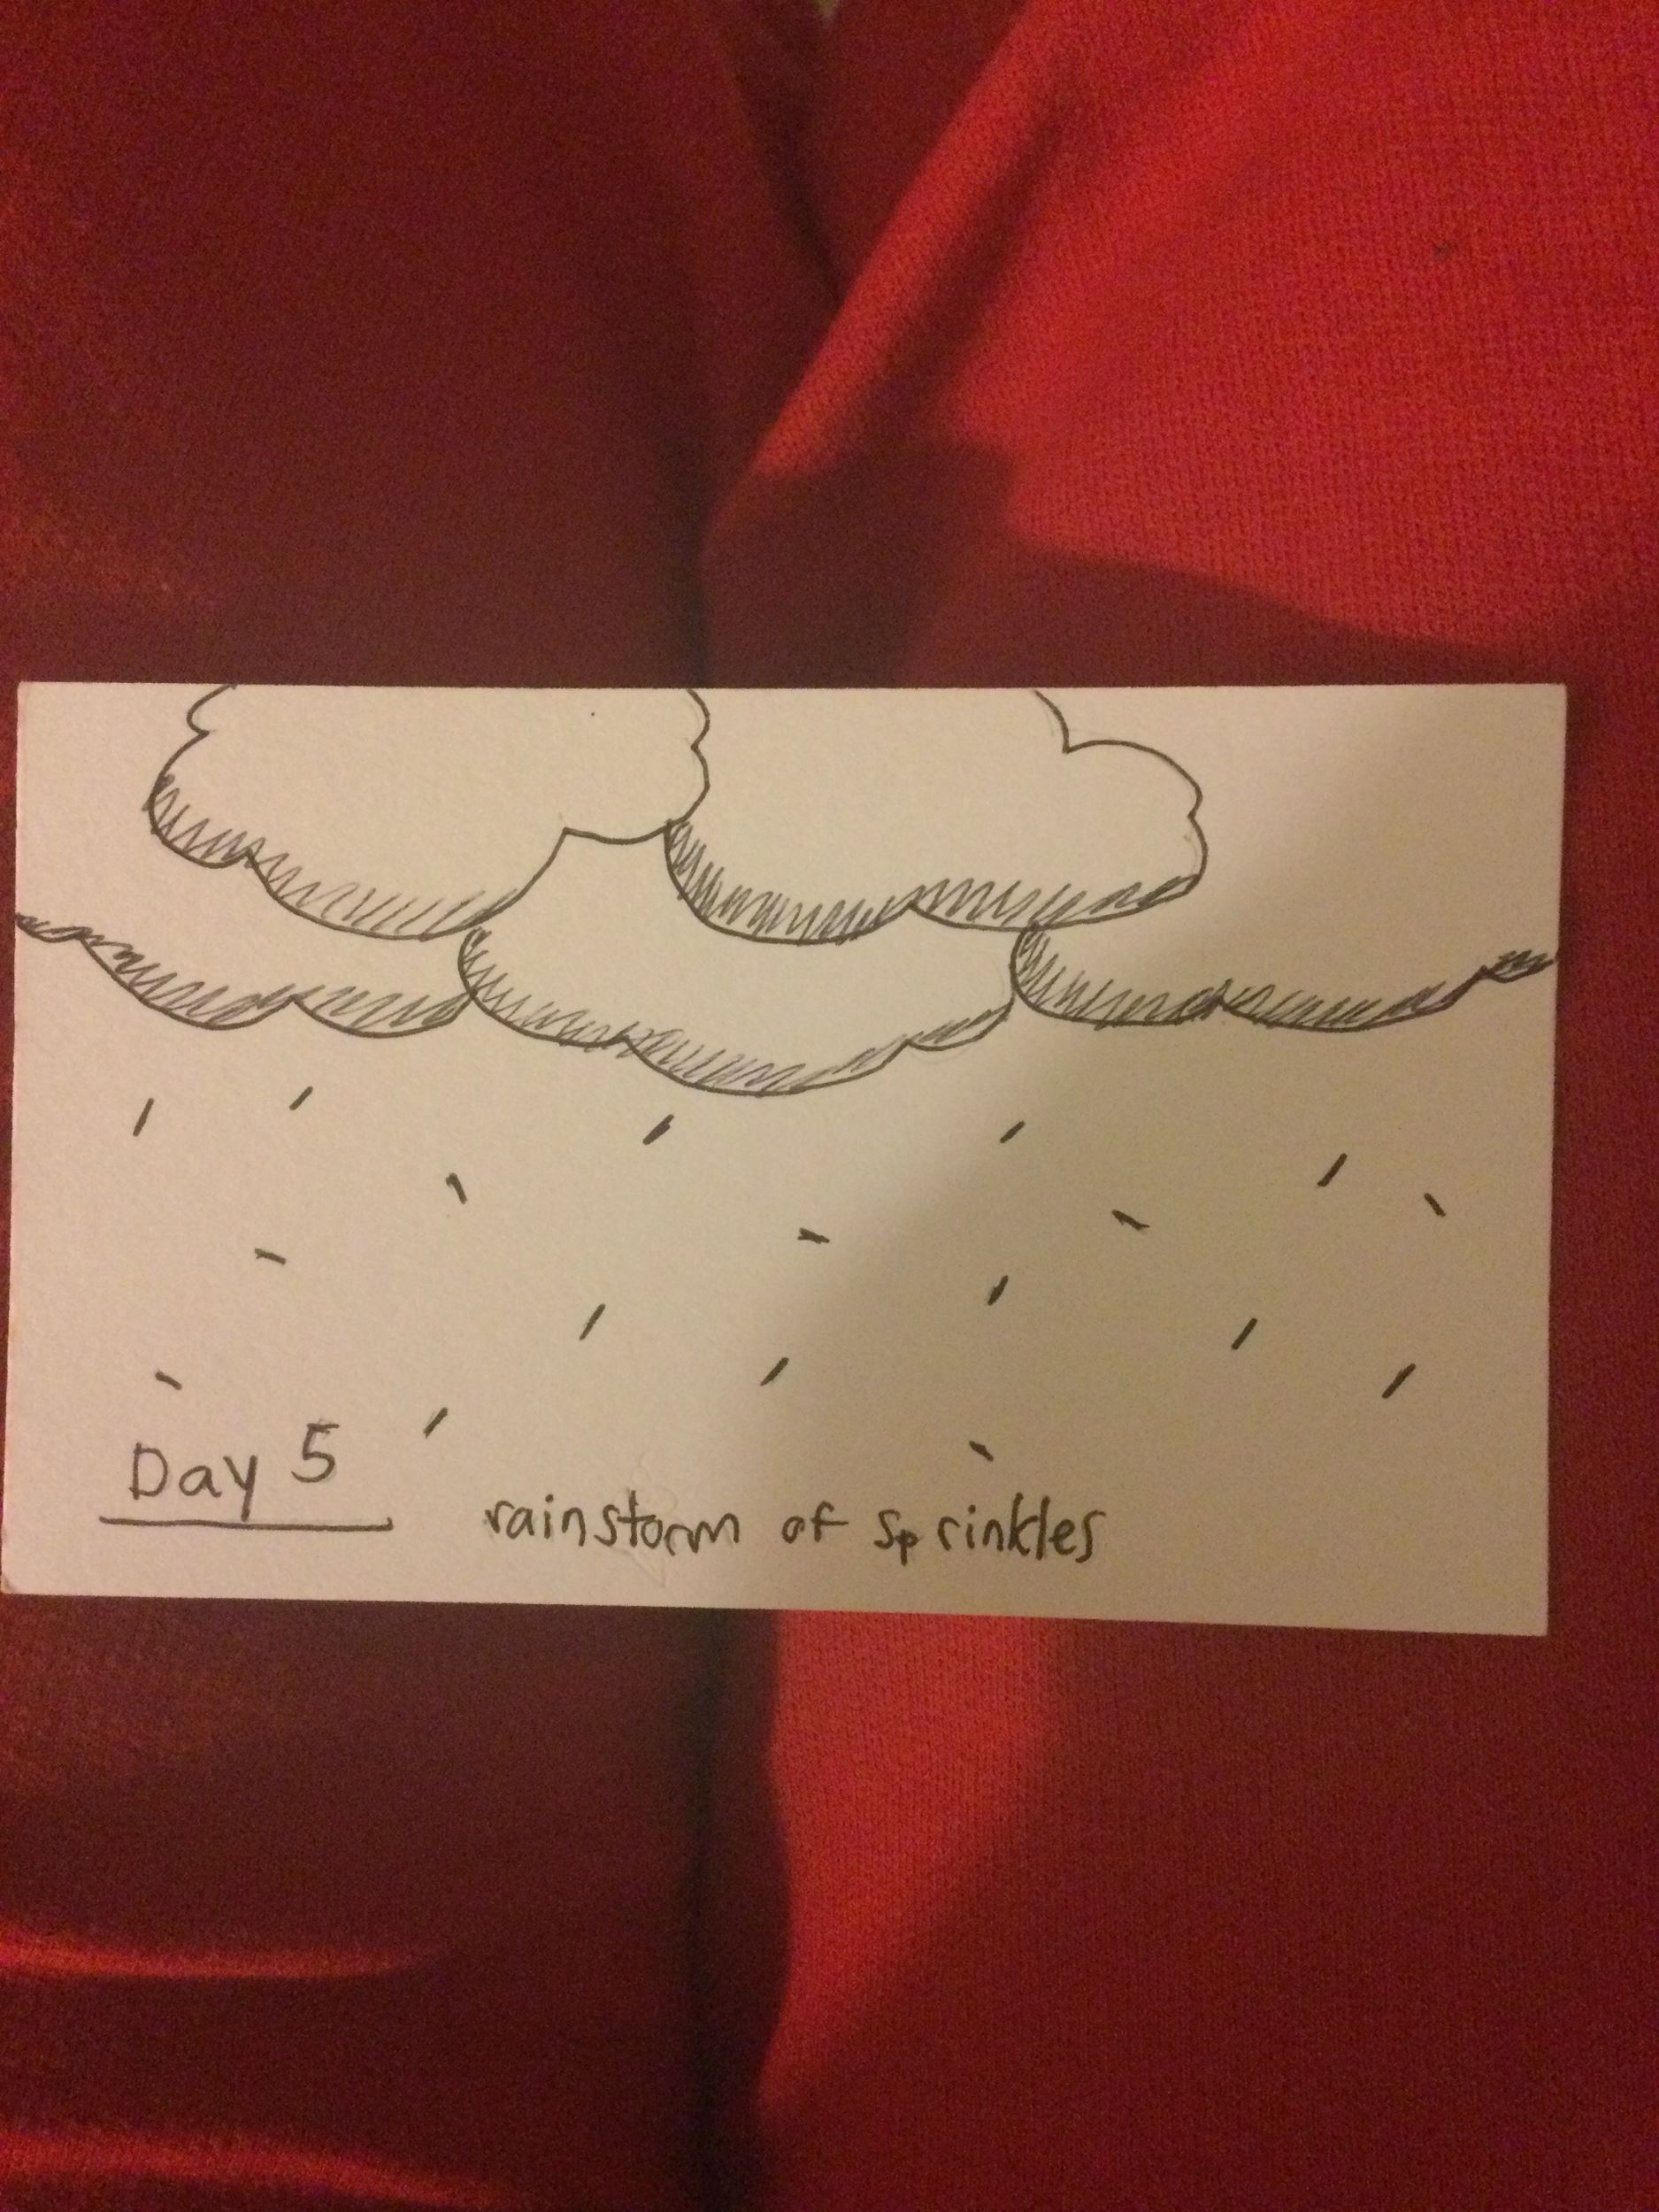 Day 5
rainstorm of sprinkles